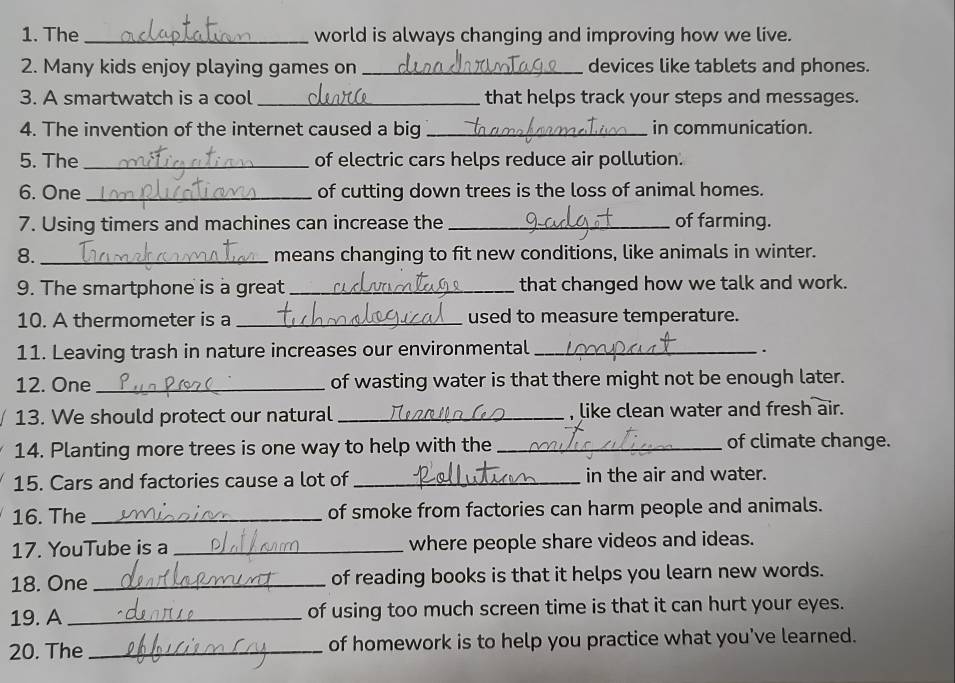 1. The adaptation world is always changing and improving how we live.
2. Many kids enjoy playing games on disadvantage devices like tablets and phones.
3. A smartwatch is a cool device that helps track your steps and messages.
4. The invention of the internet caused a big transformation in communication.
5. The mitigation of electric cars helps reduce air pollution.
6. One implications of cutting down trees is the loss of animal homes.
7. Using timers and machines can increase the gadget of farming.
8. Transformation means changing to fit new conditions, like animals in winter.
9. The smartphone is a great advantage that changed how we talk and work.
10. A thermometer is a technological used to measure temperature.
11. Leaving trash in nature increases our environmental impact .
12. One Purpose of wasting water is that there might not be enough later.
13. We should protect our natural resources , like clean water and fresh air.
14. Planting more trees is one way to help with the mitigation of climate change.
15. Cars and factories cause a lot of Pollution in the air and water.
16. The emission of smoke from factories can harm people and animals.
17. YouTube is a platform where people share videos and ideas.
18. One development of reading books is that it helps you learn new words.
19. A device of using too much screen time is that it can hurt your eyes.
20. The efficiency of homework is to help you practice what you've learned.